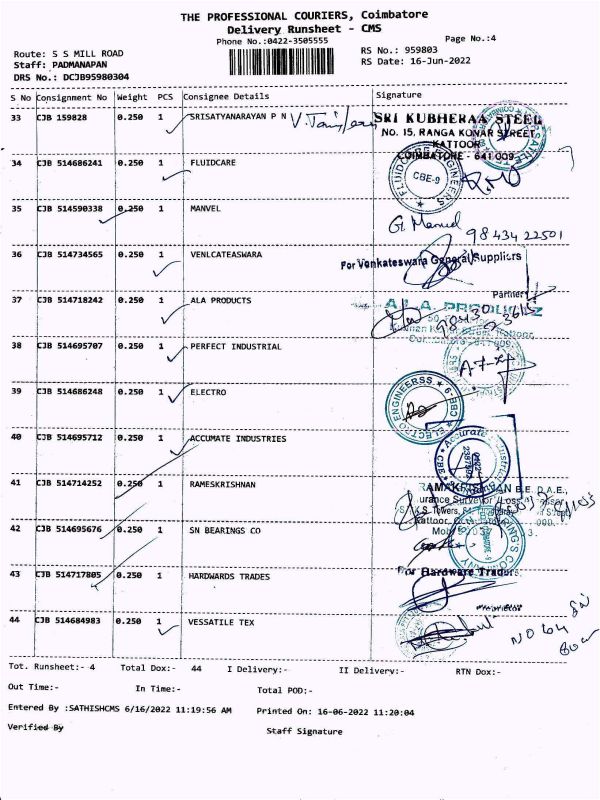 THE PROFESSIONAL COURIERS, Coimbatore
Delivery Runsheet - CMS
Phone No.:0422-3505555
Page No.:4
Route: S S MILL ROAD
RS No.: 959803
Staff: PADMANAPAN
RS Date: 16-Jun-2022
DRS No.: DCJB95980304
S No Consignment No Weight PCS Consignee Details Signature
33 CJB 159828 0.250 1 SRISATYANARAYAN P N
SRI KUBHERAA STEEL
NO. 15, RANGA KONAR STREET,
KATTOOR
COIMBATORE - 641 009.
34 CJB 514686241 0.250 1 FLUIDCARE
FLUIDCARE ENGINEERS
CBE-9
35 CJB 514590338 0.250 1 MANVEL
G. Manuel
98434 22501
36 CJB 514734565 0.250 1 VENLCATEASWARA
For Venkateswara General Suppliers
Partner
37 CJB 514718242 0.250 1 ALA PRODUCTS
38 CJB 514695707 0.250 1 PERFECT INDUSTRIAL
39 CJB 514686248 0.250 1 ELECTRO
ELECTRO ENGINEERSS
40 CJB 514695712 0.250 1 ACCUMATE INDUSTRIES
Accurate
41 CJB 514714252 0.250 1 RAMESKRISHNAN
42 CJB 514695676 0.250 1 SN BEARINGS CO
43 CJB 514717805 0.250 1 HARDWARDS TRADES
For Hardware Traders
Proprietor
44 CJB 514684983 0.250 1 VESSATILE TEX
Tot. Runsheet:- 4 Total Dox:- 44 I Delivery:- II Delivery:- RTN Dox:-
Out Time:- In Time:- Total POD:-
Entered By :SATHISHCMS 6/16/2022 11:19:56 AM Printed On: 16-06-2022 11:20:04
Verified By Staff Signature